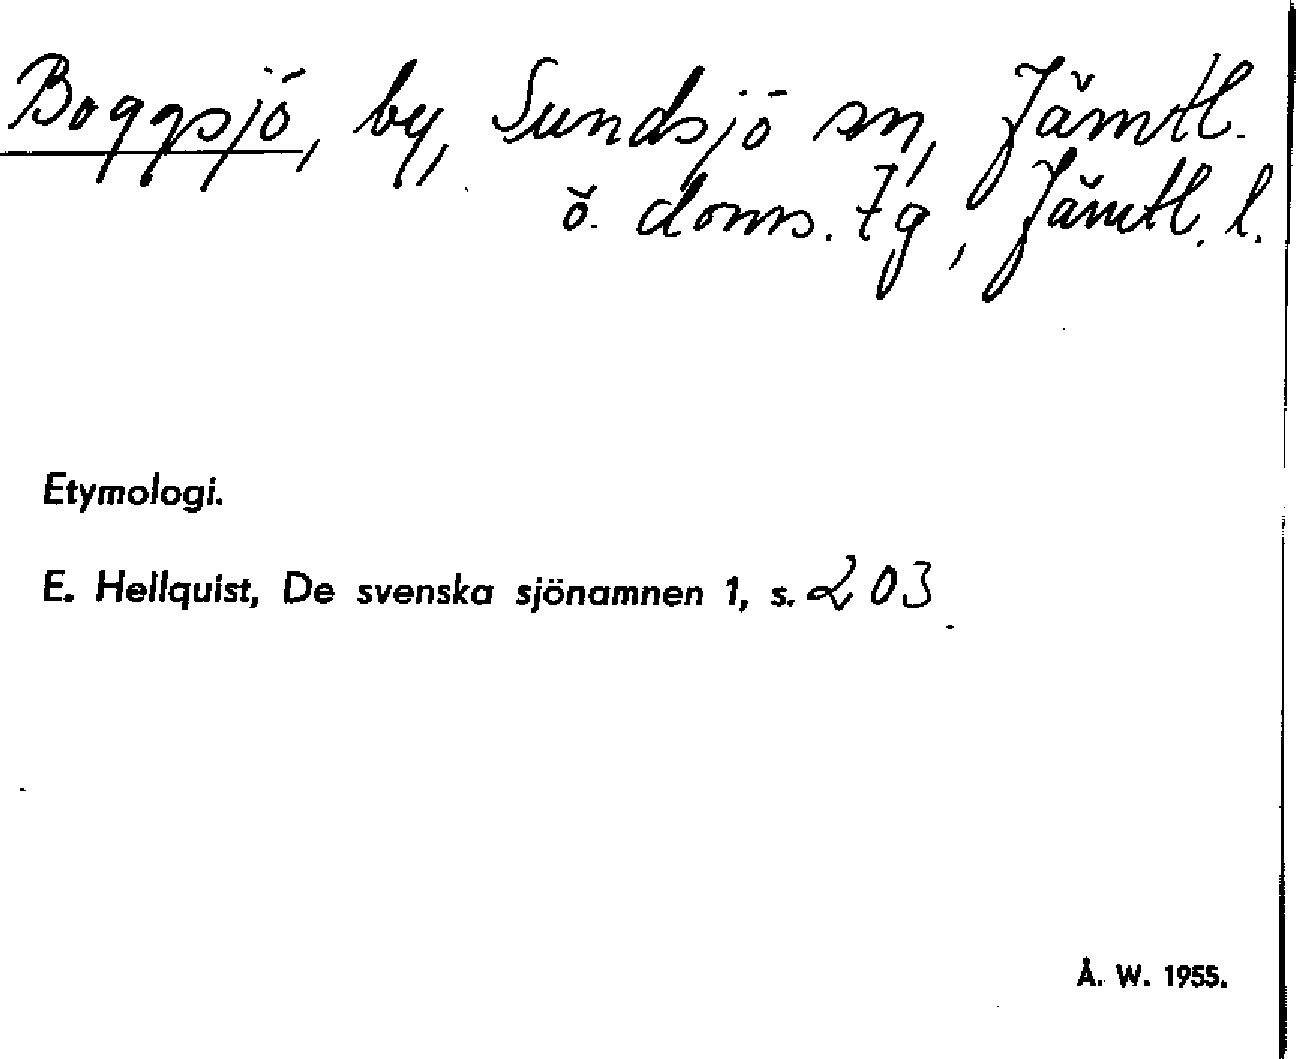 Boggsjö, by, Sundsjö sn, Jämtl.
ö. doms. tg, Jämtl. l.
Etymologi.
E. Hellquist, De svenska sjönamnen 1, s. 203
Å. W. 1955.